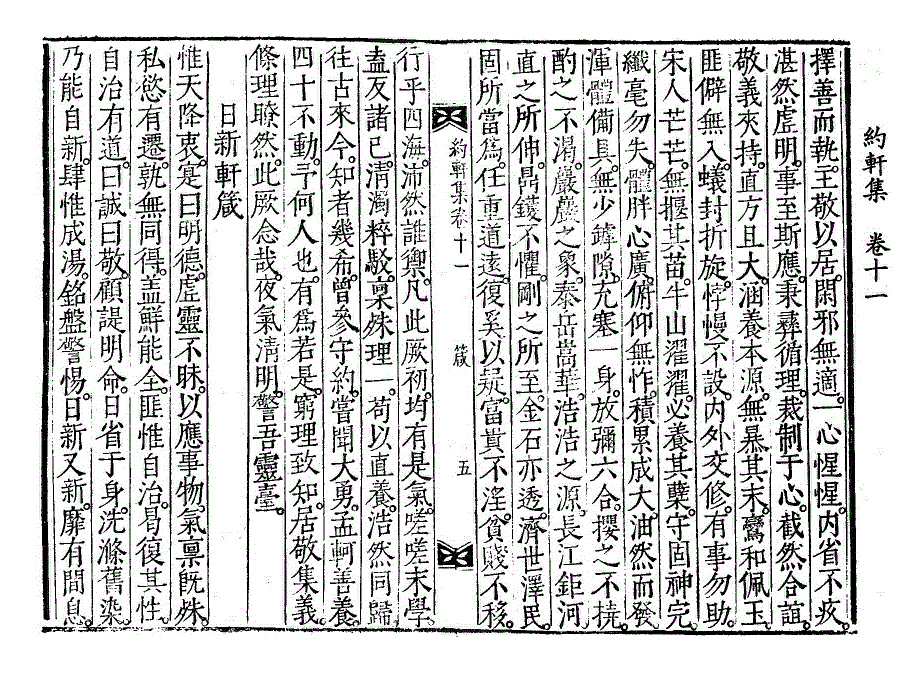 約軒集　卷十一
擇善而執。主敬以居。閑邪無適。一心惺惺。內省不疚。
湛然虛明。事至斯應。秉彝循理。裁制于心。截然合誼。
敬義夾持。直方且大。涵養本源。無暴其末。鸞和佩玉。
匪僻無入。蟻封折旋。悖慢不設。內外交修。有事勿助。
宋人芒芒。無揠其苗。牛山濯濯。必養其孼。守固神完。
纖毫勿失。體胖心廣。俯仰無怍。積累成大。油然而發。
渾體備具。無少罅隙。充塞一身。放彌六合。攖之不撓。
酌之不渴。嚴嚴之象。泰岳嵩華。浩浩之源。長江鉅河。
直之所伸。鼎鑊不懼。剛之所至。金石亦透。濟世澤民。
固所當爲。任重道遠。復奚以疑。富貴不淫。貧賤不移。
約軒集卷十一　箴　五
行乎四海。沛然誰禦。凡此厥初。均有是氣。嗟嗟末學。
盍反諸己。淸濁粹駁。稟殊理一。苟以直養。浩然同歸。
往古來今。知者幾希。曾參守約。嘗聞大勇。孟軻善養。
四十不動。予何人也。有爲若是。窮理致知。居敬集義。
條理瞭然。此厥念哉。夜氣淸明。警吾靈臺。
日新軒箴
惟天降衷。寔曰明德。虛靈不昧。以應事物。氣稟旣殊。
私慾有遷。孰無同得。盖鮮能全。匪惟自治。曷復其性。
自治有道。曰誠曰敬。顧諟明命。日省于身。洗滌舊染。
乃能自新。肆惟成湯。銘盤警惕。日新又新。靡有間息。